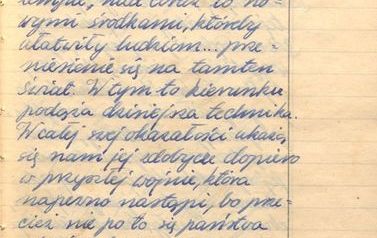 wymi środkami, któreby
ułatwiły ludziom... prze-
niesienie się na tamten
świat. W tym to kierunku
podąża dzisiejsza technika.
W całej swej okazałości ukażą
się nam jej zdobycze dopiero
w przyszłej wojnie, która
napewno nastąpi, bo prze-
cież nie po to się państwa